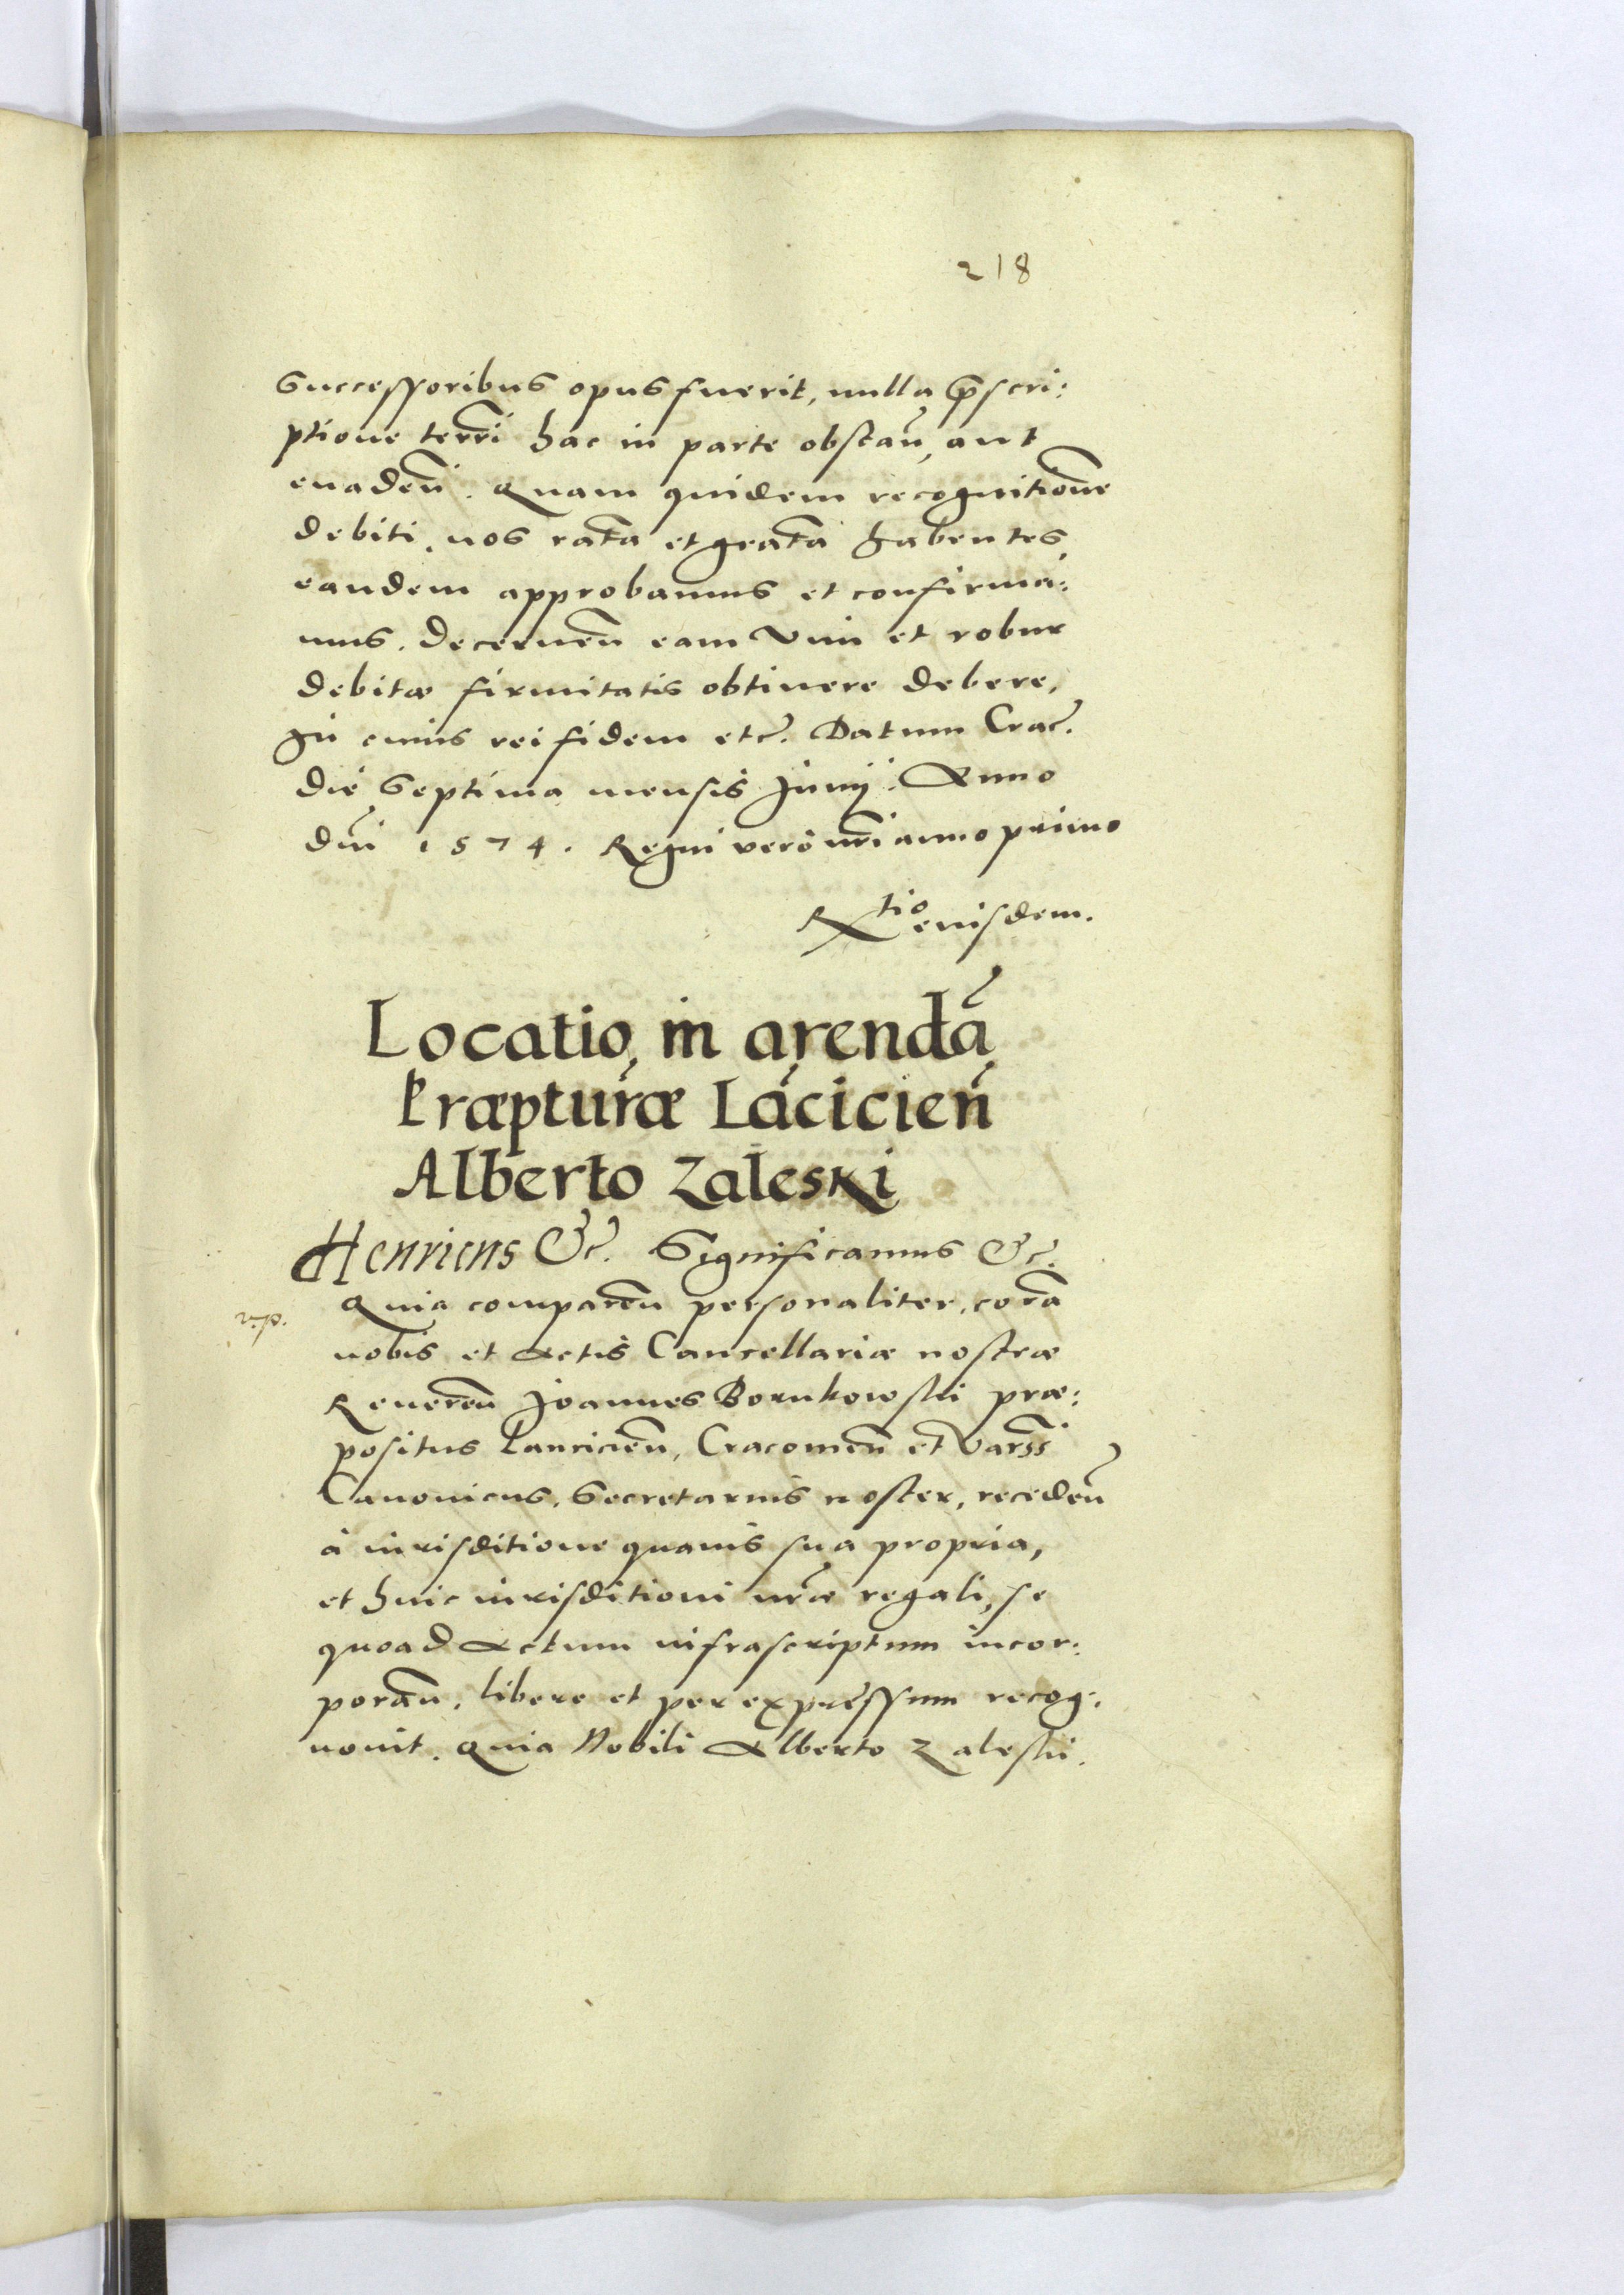 218
Successoribus opus fuerit, nulla p̄scri:
ptione terrī hac in parte obstan̄, aut
euaden̄. Quam quidem recognitionē
debiti, nos ratā et gratā habentes,
eandem approbamus et confirma:
mus. Decernen̄ eam vim et robur
debitæ firmitatis obtinere debere,
In cuius rei fidem etc̄. Datum Crac̄.
die Septima mensis Junij. Anno
dn̄i 1574. Regni verò nr̄i anno primo
Rtio eiusdem.
Locatio in arendā
Præpturæ Lācicień
Alberto Zaleski
Henricus &c. Significamus &c.
Quia comparen̄ personaliter, corā
nobis et Actis Cancellariæ nostræ
Reueren̄ Joannes Borukowski præ:
positus Lancicien̄, Cracouien̄ et Varss̄
Canonicus, Secretarius noster, receden̄
à iurisditione quauis sua propria,
et huic iurisditioni nr̄æ regali, se
quoad Actum infrascriptum incor:
poran̄. libere et per expressum recog:
nouit. Quia Nobili Alberto Zaleski.